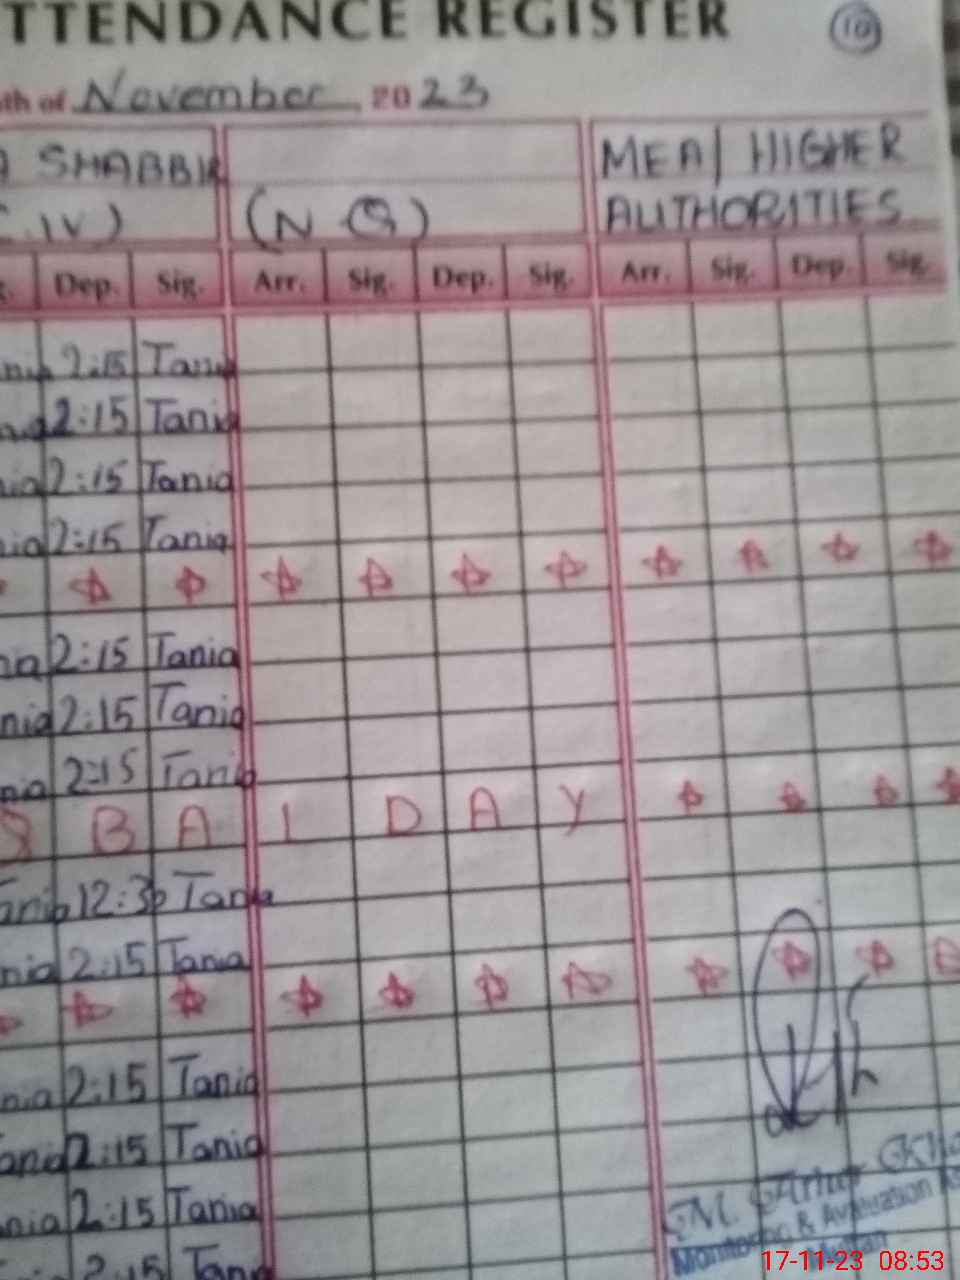 TTENDANCE REGISTER 10
th of November 2023
SHABBIR MEA/ HIGHER
IV) (N Q) AUTHORITIES
Dep. Sig. Arr. Sig. Dep. Sig. Arr. Sig. Dep. Sig.
2:15 Tania
2:15 Tania
2:15 Tania
2:15 Tania
2:15 Tania
2:15 Tania
2:15 Tania
B A L D A Y
12:30 Tania
2:15 Tania
2:15 Tania
2:15 Tania
2:15 Tania
2:15 Tania
M.
Monitoring & Evaluation
Multan
17-11-23 08:53